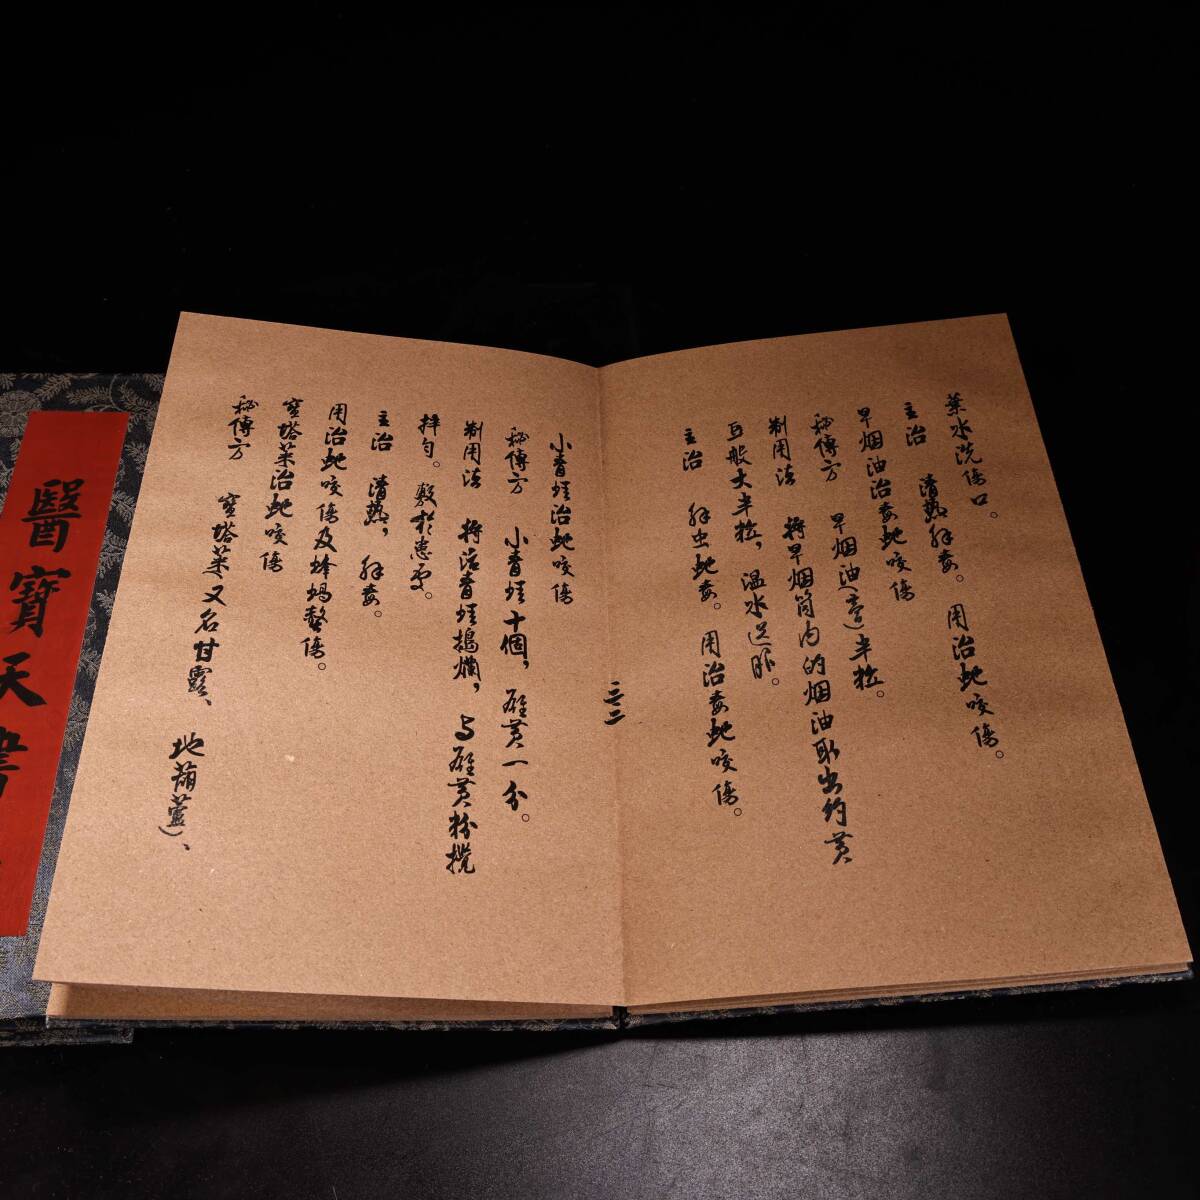 葉水洗傷口。
主治　清熱解毒。用治蛇咬傷。
旱烟油治毒蛇咬傷
秘傳方　旱烟油（膏）半粒。
制用法　將旱烟筒内的烟油取出約黄
豆般大半粒，温水送服。
主治　解虫蛇毒。用治毒蛇咬傷。
三二
小青蛙治蛇咬傷
秘傳方　小青蛙十個，雄黄一分。
制用法　將活青蛙搗爛，与雄黄粉攪
拌匀。敷於患處。
主治　清熱，解毒。
用治蛇咬傷及蜂蝎螫傷。
寶塔菜治蛇咬傷
秘傳方　寶塔菜（又名甘露、地葫蘆）、
醫寶天書